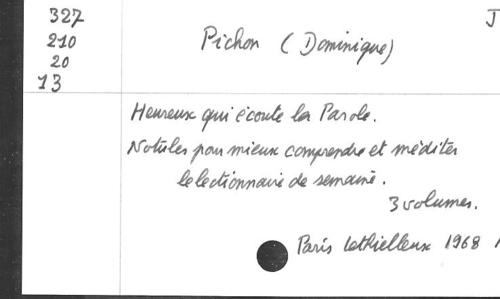 327
210
20
13
J
Pichon (Dominique)
Heureux qui écoute la Parole.
Notules pour mieux comprendre et méditer
le lectionnaire de semaine.
3 volumes.
Paris Lethielleux 1968